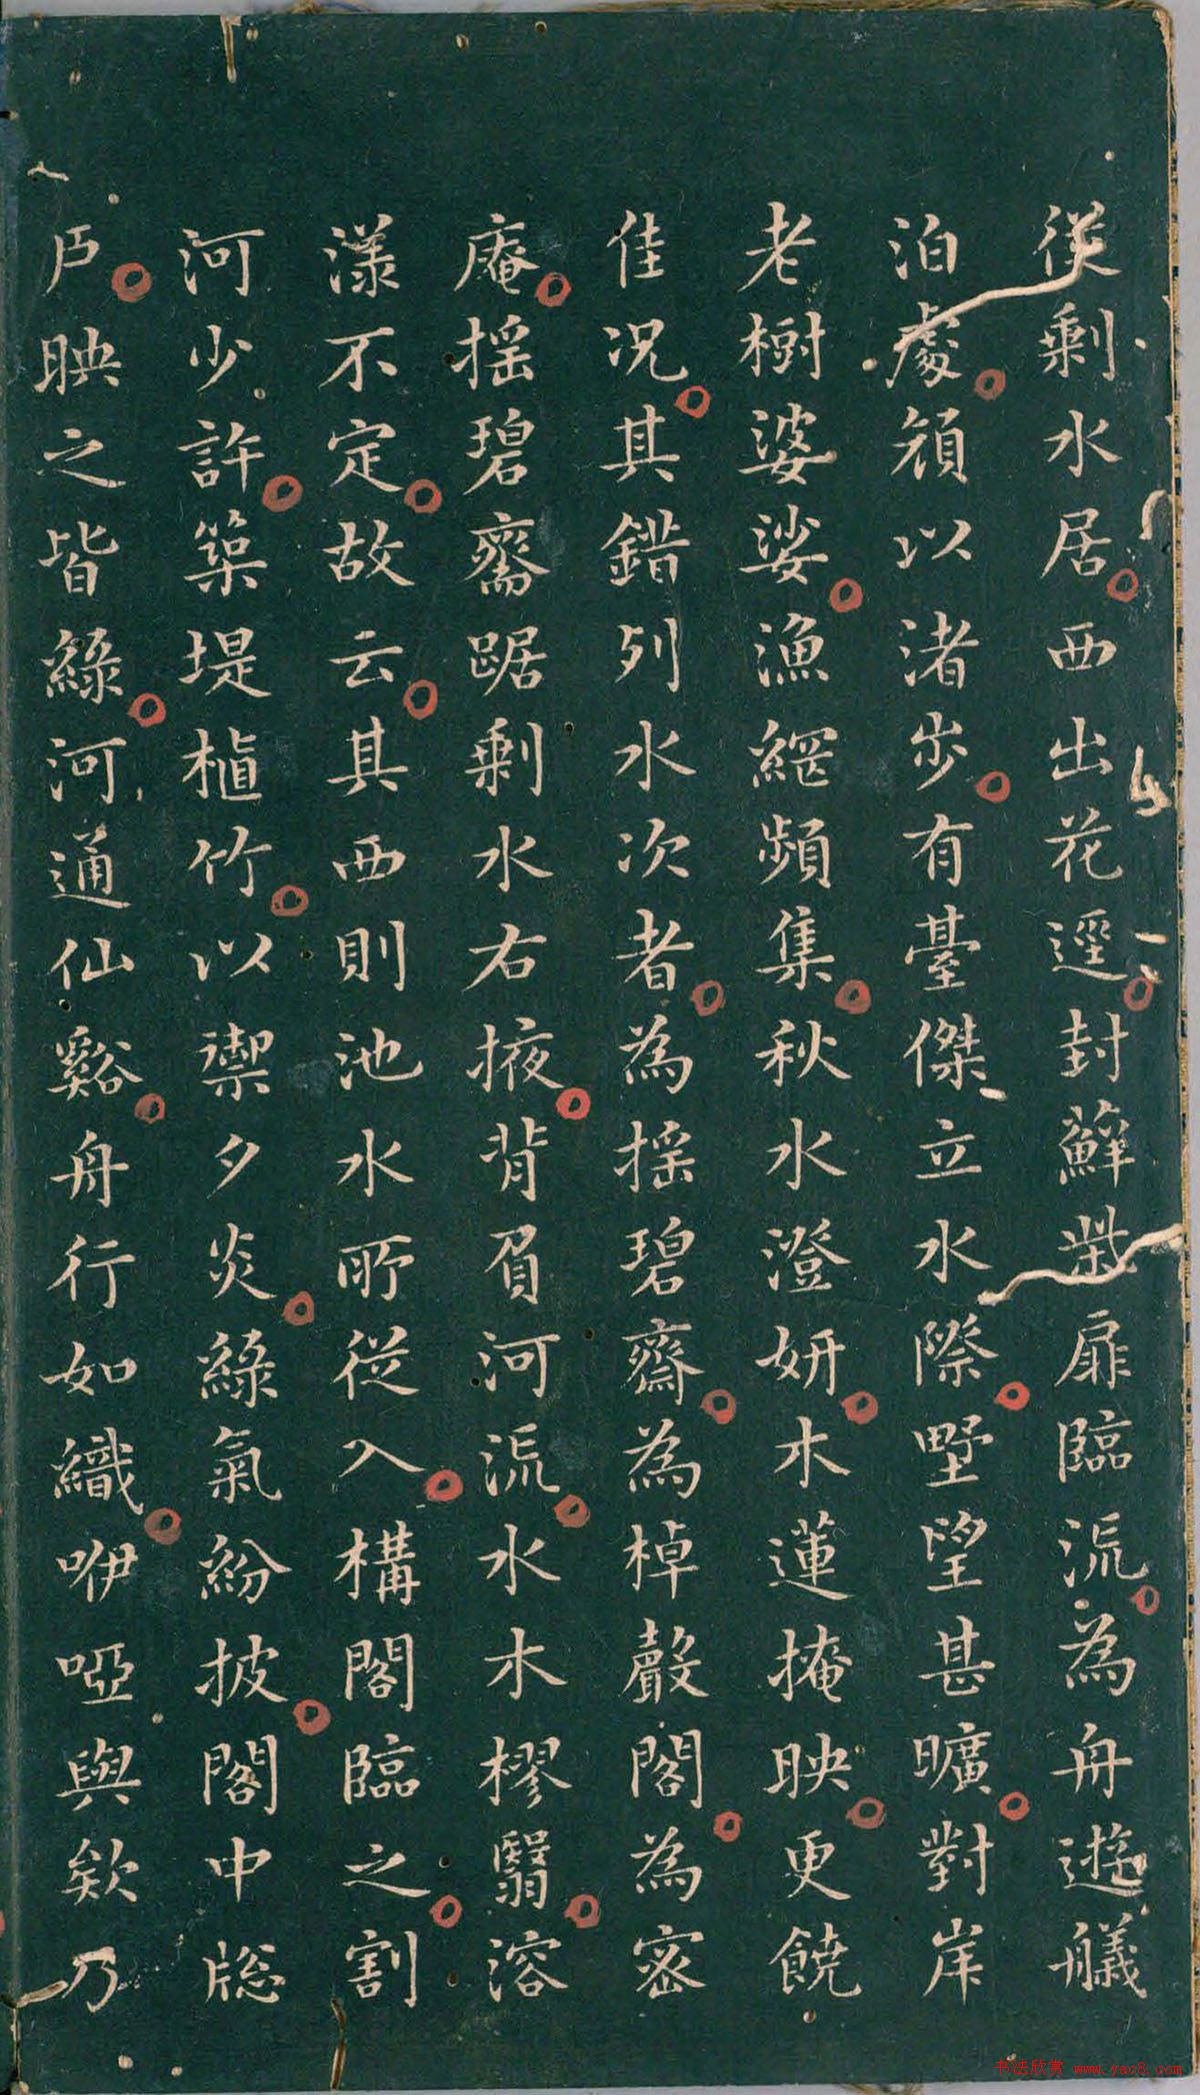 從剩水居西出花逕封蘚柴扉臨流為舟遊艤
泊處傾以渚步有臺傑立水際野望甚曠對岸
老樹婆娑漁網頻集秋水澄妍木蓮掩映更饒
佳況其錯列水次者為搖碧齋為棹聲閣為密
庵搖碧齋踞剩水右掖背眉河流水木樛翳溶
漾不定故云其西則池水所從入構閣臨之割
河少許築堤植竹以禦夕炎綠氣紛披閣中牕
戶映之皆綠河通仙谿舟行如織咿啞與欸乃
书法欣赏 www.yac8.com